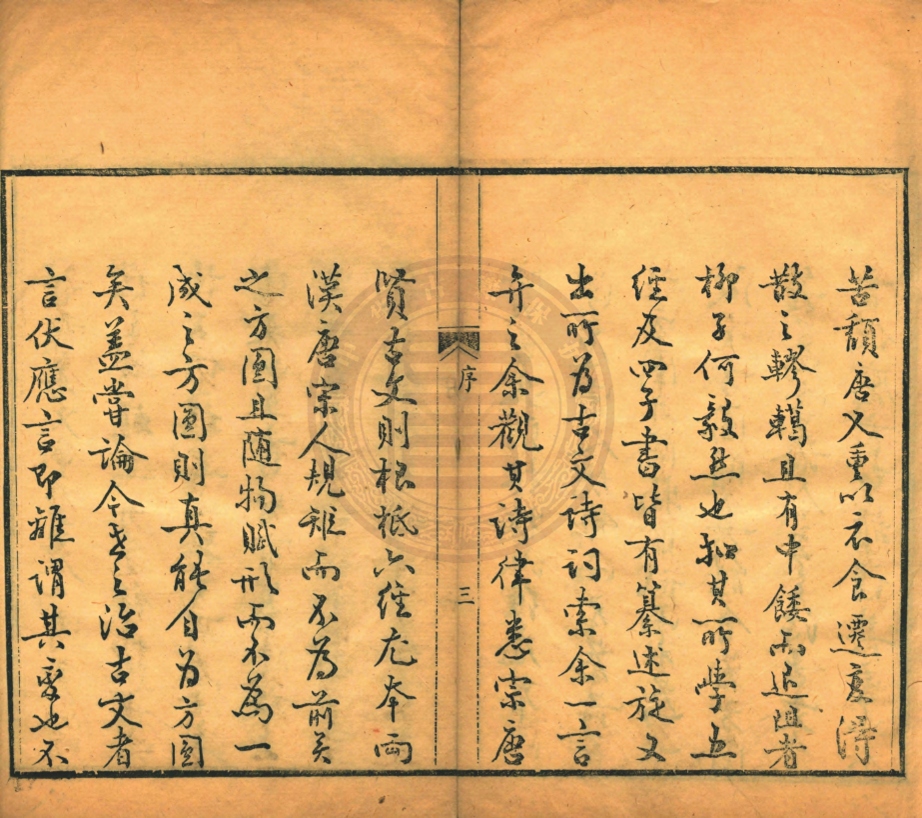 苦頹唐又重以衣食遷變得
散之轇轕且有中餧而退阻者
柳子何毅然也其所學五
經及四子書皆有纂述旋又
出所為古文詩詞索余一言
弁之余觀其詩律悉宗唐
序
三
賢古文則根柢六經尤本兩
漢唐宋人規而不為前
之方圓且隨物賦形而不為一
成之方圓則真能自為方圓
矣蓋嘗論今世之治古文者
言伏應言即離謂其變也不